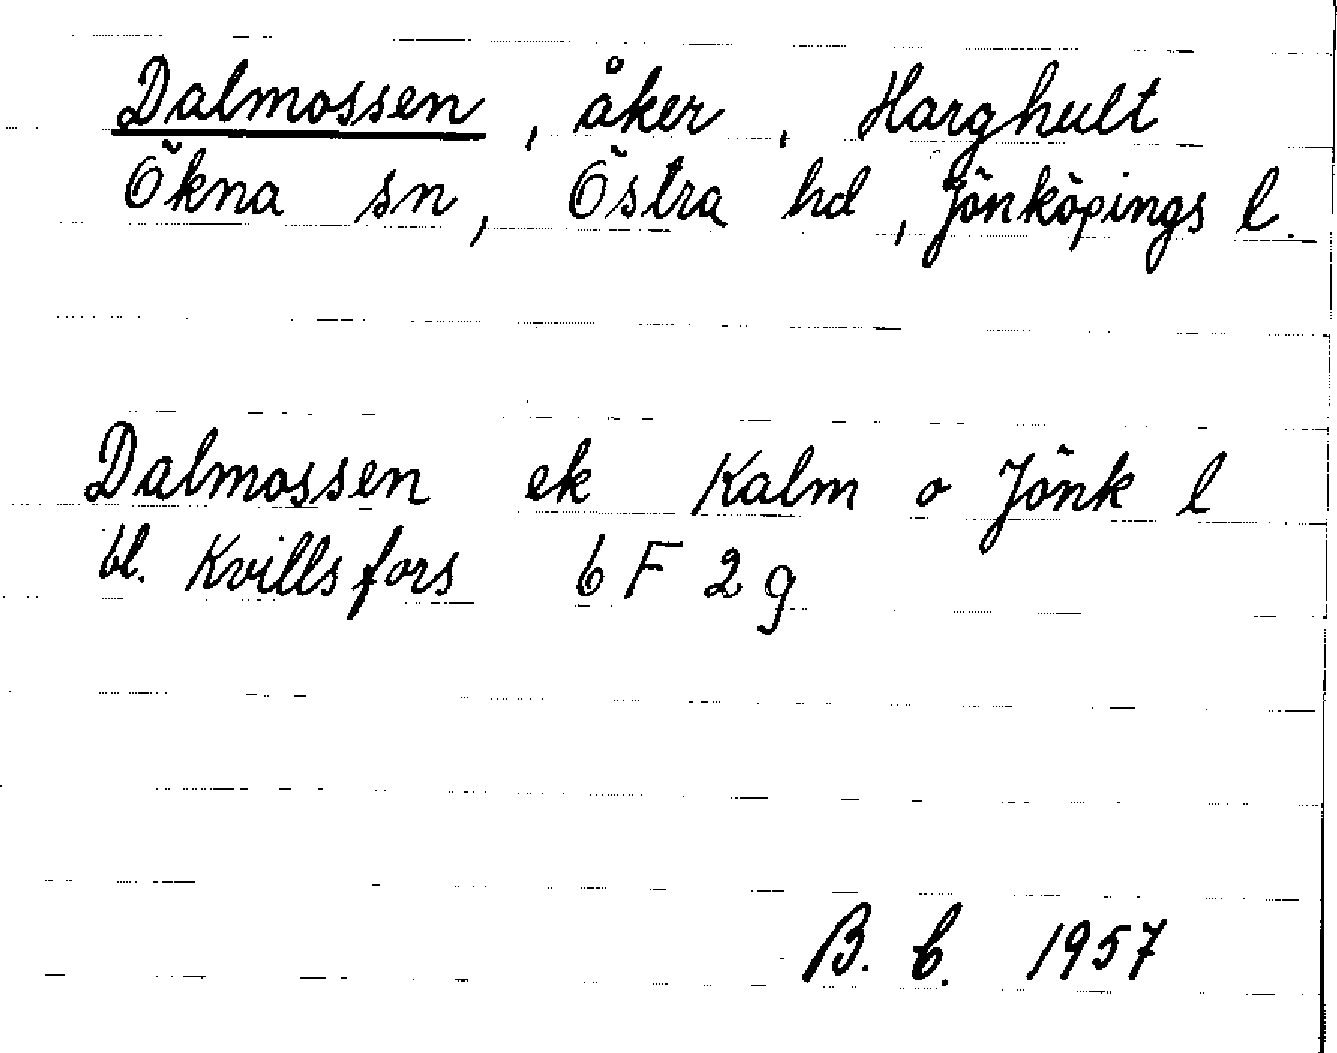 Dalmossen, åker, Harghult
Ökna sn, Östra hd, Jönköpings l.
Dalmossen ek Kalm o Jönk l
bl. Kvillsfors 6 F 2 g
B. b. 1957